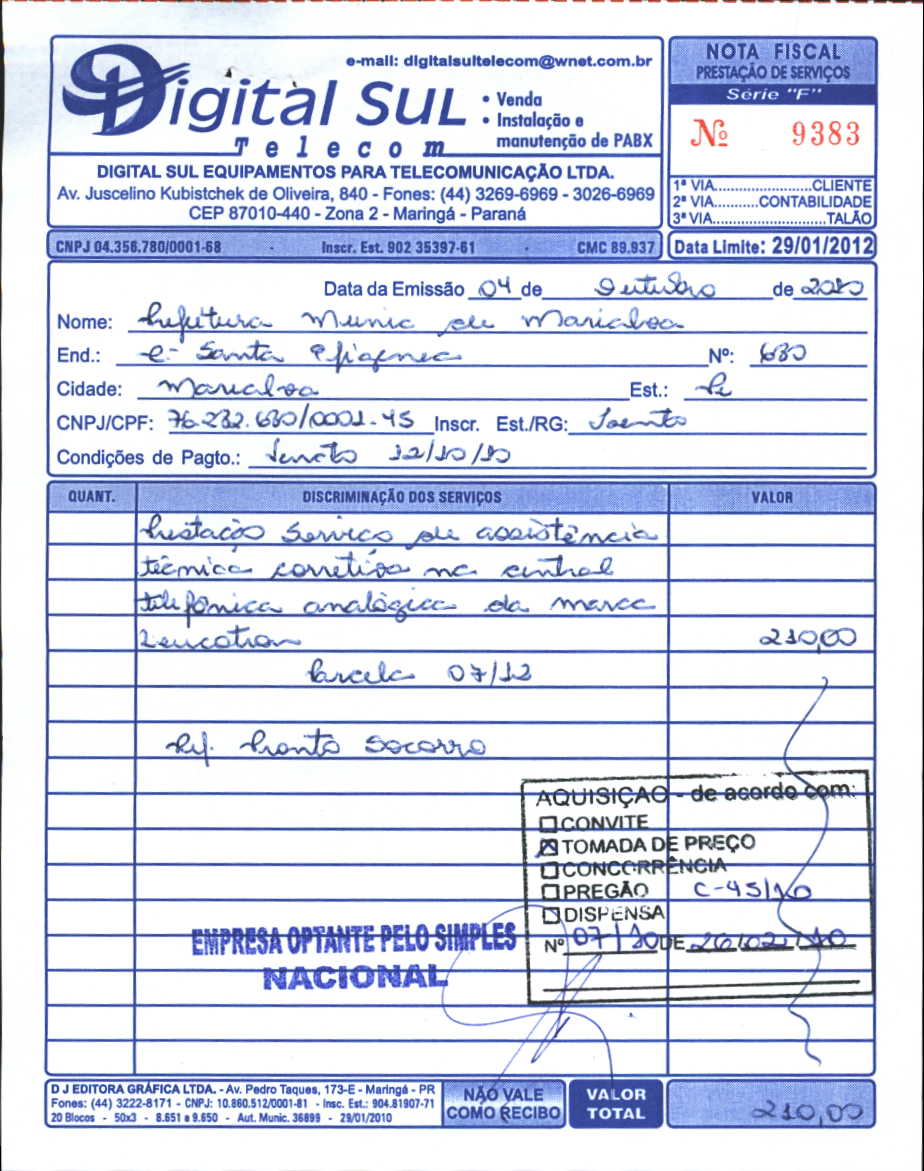 e-mail: digitalsultelecom@wnet.com.br
Digital Sul
Telecom
• Venda
• Instalação e
manutenção de PABX
DIGITAL SUL EQUIPAMENTOS PARA TELECOMUNICAÇÃO LTDA.
Av. Juscelino Kubistchek de Oliveira, 840 - Fones: (44) 3269-6969 - 3026-6969
CEP 87010-440 - Zona 2 - Maringá - Paraná
NOTA FISCAL
PRESTAÇÃO DE SERVIÇOS
Série "F"
Nº 9383
1ª VIA.......................CLIENTE
2ª VIA..........CONTABILIDADE
3ª VIA...........................TALÃO
CNPJ 04.356.780/0001-68 · Inscr. Est. 902 35397-61 · CMC 89.937
Data Limite: 29/01/2012
Data da Emissão 04 de Outubro de 2010
Nome: Prefeitura Munic de Marialva
End.: R- Santa Efigenia Nº: 680
Cidade: Marialva Est.: Pr
CNPJ/CPF: 76.282.680/0001-45 Inscr. Est./RG: Isento
Condições de Pagto.: Vencto 12/10/10
QUANT. DISCRIMINAÇÃO DOS SERVIÇOS VALOR
Prestação Serviço de assistência
técnica corretiva na central
telefônica analógica da marca
Leucotron 210,00
Parcela 07/12
Ref. Pronto Socorro
AQUISIÇAO - de acordo com:
CONVITE
TOMADA DE PREÇO
CONCORRÊNCIA
PREGÃO C-45/10
DISPENSA
Nº 07/10 DE 26/02/10
EMPRESA OPTANTE PELO SIMPLES
NACIONAL
D J EDITORA GRÁFICA LTDA. - Av. Pedro Taques, 173-E - Maringá - PR
Fones: (44) 3222-8171 - CNPJ: 10.860.512/0001-81 - Insc. Est.: 904.81907-71
20 Blocos - 50x3 - 8.651 a 9.650 - Aut. Munic. 36899 - 29/01/2010
NÃO VALE
COMO RECIBO
VALOR
TOTAL
210,00